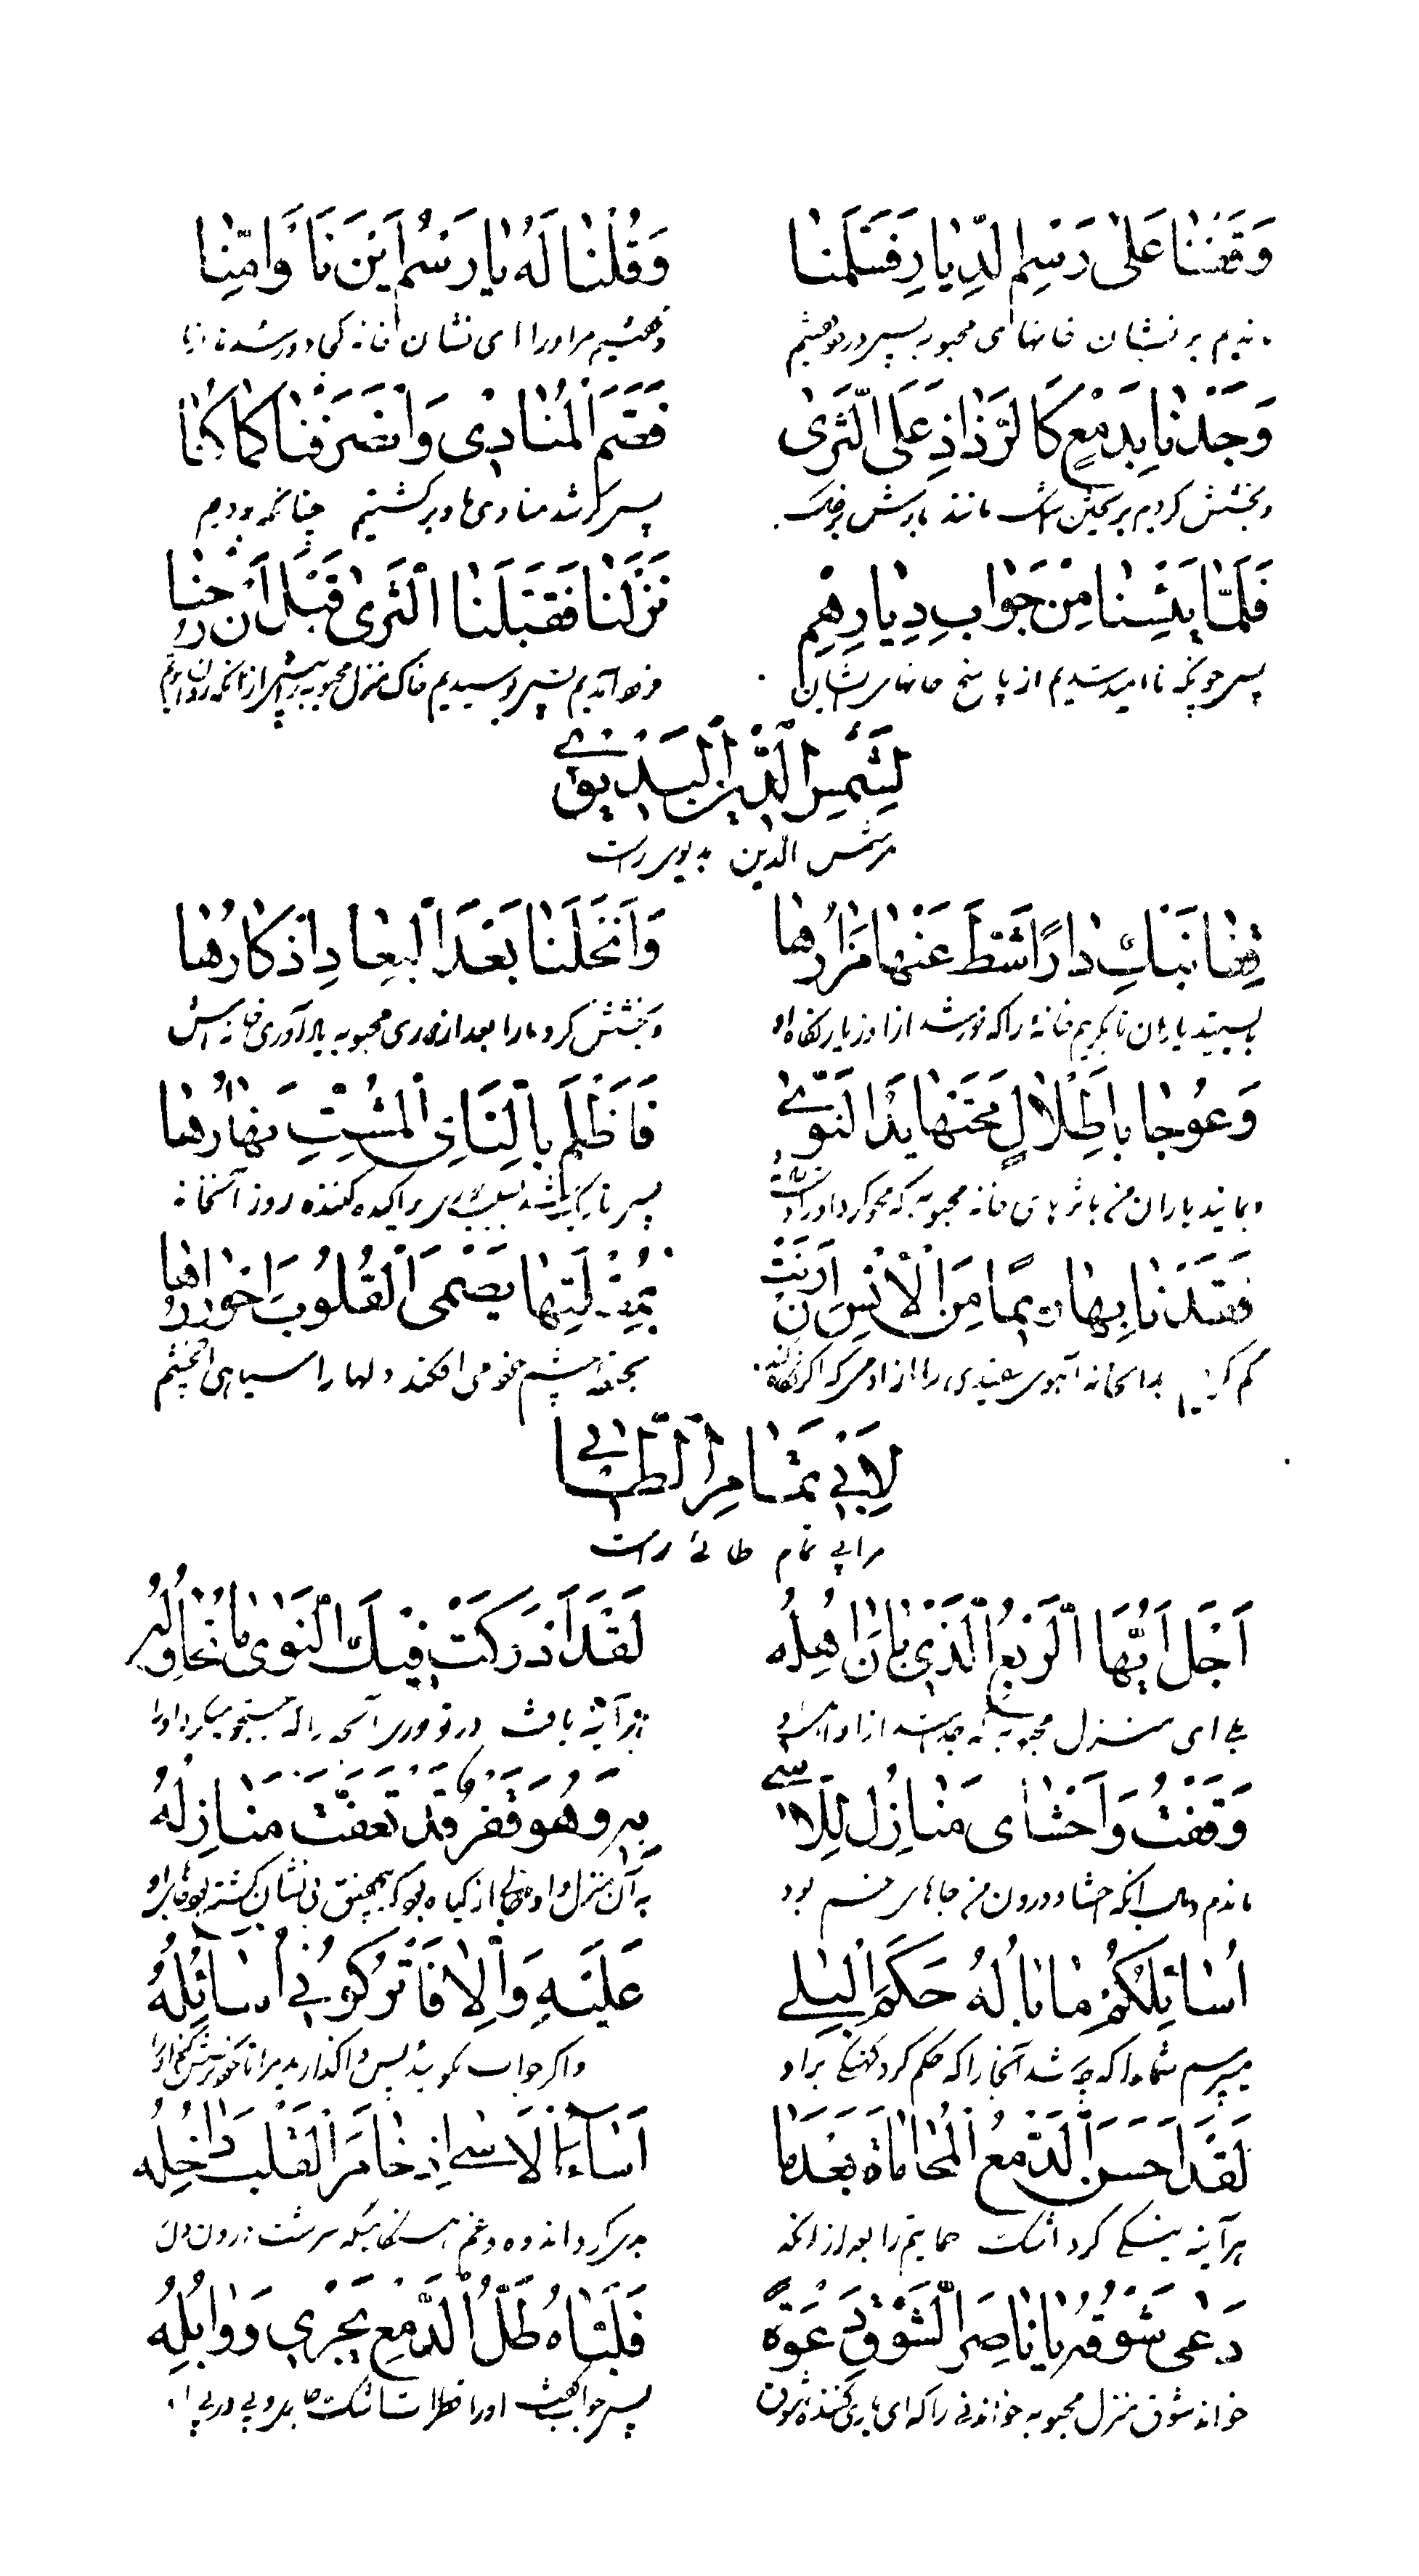 وَقَفْنَا عَلٰى رَسْمِ الدِّيَارِ فَسَلَّمْنَا وَقُلْنَا لَهُ يَا رَسْمُ اَيْنَ نَاَوْا مِنَّا
بر نشان خانهای محبوبه پس درود گفتیم و گفتیم مر او را ای نشان خانه کجا دور شدند از ما
وَجُدْنَا بِدَمْعٍ كَالرَّذَاذِ عَلَى الثَّرٰى فَصَمَّ الْمُنَادٰى وَانْصَرَفْنَا كَمَا كُنَّا
و بخشش کردیم بریختن اشک مانند بارش بر خاک پس کر شد منادی ما و برگشتیم چنانکه بودیم
فَلَمَّا يَئِسْنَا مِنْ جَوَابِ دِيَارِهِمْ نَزَلْنَا فَقَبَّلْنَا الثَّرٰى قَبْلَ اَنْ رُحْنَا
پس چونکه ناامید شدیم از پاسخ خانهای ایشان فرود آمدیم پس بوسیدیم خاک منزل محبوبه را پیش از آنکه روان شویم
لِشَمْسِ الدِّيْنِ الْبَدِيْوِيْ
مر شمس الدین بدیوی راست
قِفَا نَبْكِ دَارًا شَطَّ عَنْهَا مَزَارُهَا وَاَنْحَلَنَا بَعْدَ الْبِعَادِ اذِّكَارُهَا
بایستید یاران تا بگریم خانهٔ را که دور شد از او زیارتگاه او و بخشش کرد ما را بعد از دوری محبوبه یادآوری خانه اش
وَعُوْجَا بِاَطْلَالٍ مَحَتْهَا يَدُ النَّوٰى فَاَظْلَمَ بِالنَّاْيِ الْمُشِتِّ نَهَارُهَا
و بیائید یاران من باثرهای خانه محبوبه که محو کرد او را پس تاریک شد بسبب دوری پراکنده کننده روز آنخانه
فَقَدْنَا بِهَا رِيْمًا مِنَ الْاِنْسِ اِنْ رَنَتْ بِمُقْلَتِهَا يُصْمِى الْقُلُوْبَ احْوِرَارُهَا
گم کردیم بدانخانه آهوی سفیدی را از آدمی که اگر نگاه کند چشم خود می افکند دلها را سیاهی آنچشم
لِاَبِيْ تَمَّامِ الطَّائِيْ
مر ابی تمام طائی راست
اَجَلْ اَيُّهَا الرَّبْعُ الَّذِيْ بَانَ اٰهِلُهُ لَقَدْ اَدْرَكَتْ فِيْكَ النَّوٰى مَا تُحَاوِلُهُ
بلی ای منزل محبوبه که جدا شد از او هر آینه یافت در تو دوری آنچه را که جستجو میکرد او را
وَقَفْتُ وَاَحْشَاىَ مَنَازِلُ لِلْاَسٰى بِهِ وَهُوَ قَفْرٌ قَدْ تَعَفَّتْ مَنَازِلُهُ
ماندم و حال آنکه احشا و درون من جاهای غم بود به آن منزل و او خالی از گیاه بود که بتحقیق بی نشان گشته بود جاهای او
اُسَائِلُكُمْ مَا بَالُهُ حَكَمَ الْبِلٰى عَلَيْهِ وَاِلَّا فَاتْرُكُوْنِيْ اُسَائِلُهُ
میپرسم شما را که چه شد آنجا را که حکم کرد کهنگی بر او و اگر جواب نگوئید پس واگذارید مرا تا خود پرسش کنم او را
لَقَدْ اَحْسَنَ الدَّمْعُ الْمُحَامَاةَ بَعْدَمَا اَسَاءَ الْاَسٰى اِذْ خَامَرَ الْقَلْبَ دَاخِلُهُ
هر آینه نیکی کرد اشک حمایتم را بعد از آنکه بدی کرد اندوه و غم هنگامیکه سرشت درون دل
دَعٰى شَوْقُهُ يَا نَاصِرَ الشَّوْقِ دَعْوَةً فَلَبَّاهُ طَلُّ الدَّمْعِ يَجْرِيْ وَوَابِلُهُ
خواند شوق منزل محبوبه خواندنی را که ای یاری کننده شوق پس جواب گفت او را قطرات اشک